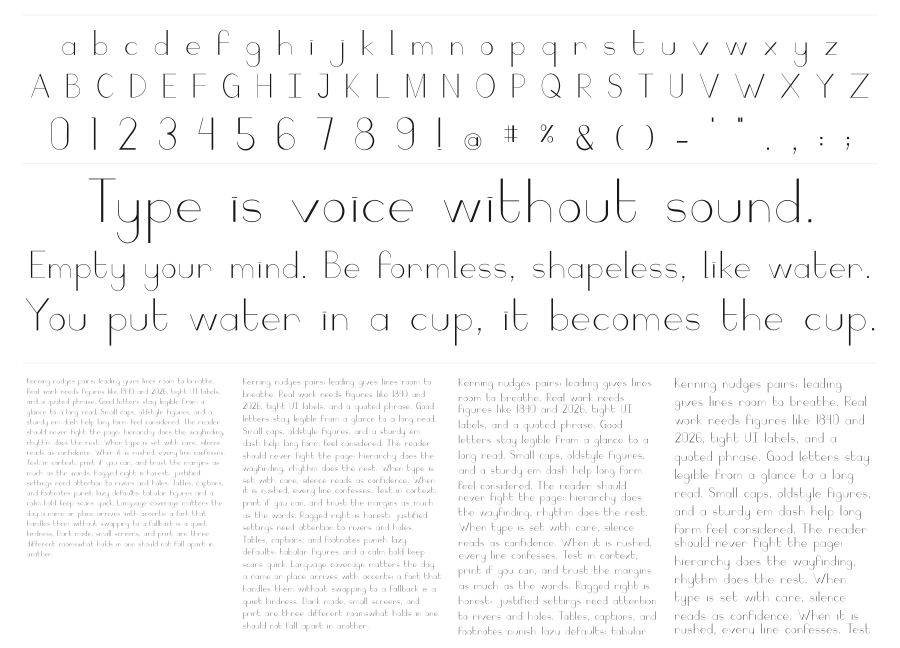 a b c d e f g h i j k l m n o p q r s t u v w x y z
A B C D E F G H I J K L M N O P Q R S T U V W X Y Z
0 1 2 3 4 5 6 7 8 9 ! @ # % & ( ) - ' " . , : ;
Type is voice without sound.
Empty your mind. Be formless, shapeless, like water.
You put water in a cup, it becomes the cup.
Kerning nudges pairs; leading gives lines room to breathe.
Real work needs figures like 1840 and 2026, tight UI labels,
and a quoted phrase. Good letters stay legible from a
glance to a long read. Small caps, oldstyle figures, and a
sturdy em dash help long form feel considered. The reader
should never fight the page: hierarchy does the wayfinding,
rhythm does the rest. When type is set with care, silence
reads as confidence. When it is rushed, every line confesses.
Test in context, print if you can, and trust the margins as
much as the words. Ragged right is honest; justified
settings need attention to rivers and holes. Tables, captions,
and footnotes punish lazy defaults; tabular figures and a
calm bold keep scans quick. Language coverage matters the
day a name or place arrives with accents; a font that
handles them without swapping to a fallback is a quiet
kindness. Dark mode, small screens, and print are three
different roomswhat holds in one should not fall apart in
another.
Kerning nudges pairs; leading gives lines room to
breathe. Real work needs figures like 1840 and
2026, tight UI labels, and a quoted phrase. Good
letters stay legible from a glance to a long read.
Small caps, oldstyle figures, and a sturdy em
dash help long form feel considered. The reader
should never fight the page: hierarchy does the
wayfinding, rhythm does the rest. When type is
set with care, silence reads as confidence. When
it is rushed, every line confesses. Test in context,
print if you can, and trust the margins as much
as the words. Ragged right is honest; justified
settings need attention to rivers and holes.
Tables, captions, and footnotes punish lazy
defaults; tabular figures and a calm bold keep
scans quick. Language coverage matters the day
a name or place arrives with accents; a font that
handles them without swapping to a fallback is a
quiet kindness. Dark mode, small screens, and
print are three different roomswhat holds in one
should not fall apart in another.
Kerning nudges pairs; leading gives lines
room to breathe. Real work needs
figures like 1840 and 2026, tight UI
labels, and a quoted phrase. Good
letters stay legible from a glance to a
long read. Small caps, oldstyle figures,
and a sturdy em dash help long form
feel considered. The reader should
never fight the page: hierarchy does
the wayfinding, rhythm does the rest.
When type is set with care, silence
reads as confidence. When it is rushed,
every line confesses. Test in context,
print if you can, and trust the margins
as much as the words. Ragged right is
honest; justified settings need attention
to rivers and holes. Tables, captions, and
footnotes punish lazy defaults; tabular
Kerning nudges pairs; leading
gives lines room to breathe. Real
work needs figures like 1840 and
2026, tight UI labels, and a
quoted phrase. Good letters stay
legible from a glance to a long
read. Small caps, oldstyle figures,
and a sturdy em dash help long
form feel considered. The reader
should never fight the page:
hierarchy does the wayfinding,
rhythm does the rest. When
type is set with care, silence
reads as confidence. When it is
rushed, every line confesses. Test